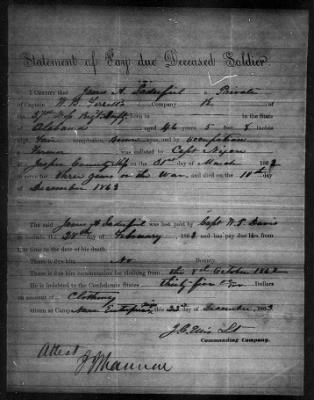 Statement of Pay due Deceased Soldier.
I Certify that James A. a Private
of Captain W. B. Company B.
37th Miss Regt born in the State
of Alabama aged 46 years 5 feet 8 inches
high Fair complexion, eyes, and by occupation
Farmer was enlisted by Capt
at Jasper County Miss on the 31st day of March 1862
to serve three years or the War, and died on the 10th day of
December 1863
The said James A. was last paid by Capt W. S. Davis
to include the 28th day of February 1863 and has pay due him from
that time to the date of his death.
There is due him No Bounty.
There is due him commutation for clothing from the 8th October 1862
He is indebted to the Confederate States thirty five Dollars
on account of Clothing
Given at Camp Near Enterprise, this 23rd day of December 1863
Lt
Commanding Company.
Attest